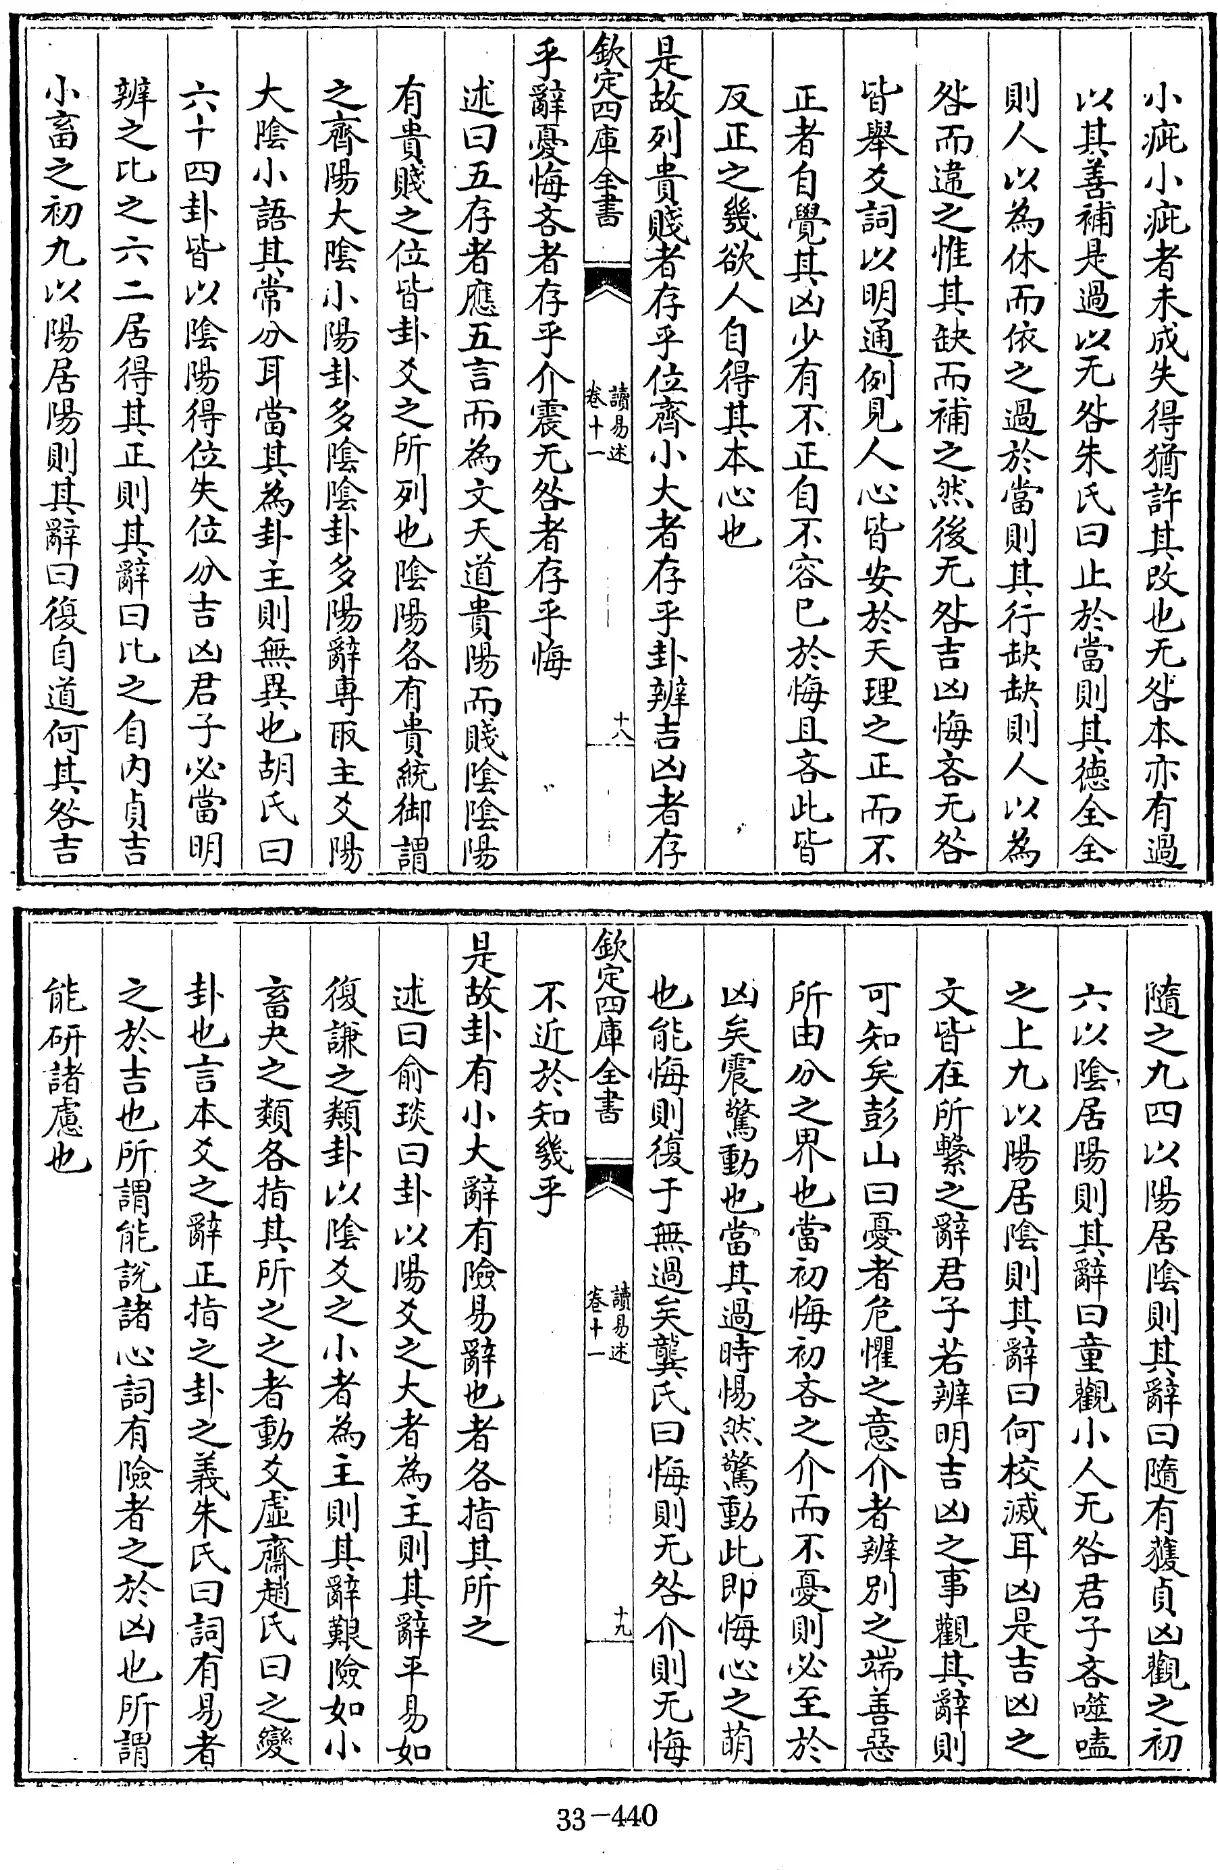 小疵小疵者未成失得猶許其改也无咎本亦有過
以其善補是過以无咎朱氏曰止於當則其徳全全
則人以為休而依之過於當則其行缺缺則人以為
咎而違之惟其缺而補之然後无咎吉凶悔吝无咎
皆舉爻詞以明通例見人心皆安於天理之正而不
正者自覺其凶少有不正自不容已於悔且吝此皆
反正之幾欲人自得其本心也
是故列貴賤者存乎位齊小大者存乎卦辨吉凶者存
欽定四庫全書
讀易述
卷十一
十八
乎辭憂悔吝者存乎介震无咎者存乎悔
述曰五存者應五言而為文天道貴陽而賤陰陰陽
有貴賤之位皆卦爻之所列也陰陽各有貴統御謂
之齊陽大陰小陽卦多陰陰卦多陽辭專取主爻陽
大陰小語其常分耳當其為卦主則無異也胡氏曰
六十四卦皆以陰陽得位失位分吉凶君子必當明
辨之比之六二居得其正則其辭曰比之自内貞吉
小畜之初九以陽居陽則其辭曰復自道何其咎吉
隨之九四以陽居陰則其辭曰隨有獲貞凶觀之初
六以陰居陽則其辭曰童觀小人无咎君子吝噬嗑
之上九以陽居陰則其辭曰何校滅耳凶是吉凶之
文皆在所繫之辭君子若辨明吉凶之事觀其辭則
可知矣彭山曰憂者危懼之意介者辨别之端善惡
所由分之界也當初悔初吝之介而不憂則必至於
凶矣震驚動也當其過時惕然驚動此即悔心之萌
也能悔則復于無過矣龔氏曰悔則无咎介則无悔
欽定四庫全書
讀易述
卷十一
十九
不近於知幾乎
是故卦有小大辭有險易辭也者各指其所之
述曰俞琰曰卦以陽爻之大者為主則其辭平易如
復謙之類卦以陰爻之小者為主則其辭艱險如小
畜夬之類各指其所之之者動爻虛齋趙氏曰之變
卦也言本爻之辭正指之卦之義朱氏曰詞有易者
之於吉也所謂能說諸心詞有險者之於凶也所謂
能研諸慮也
33-440